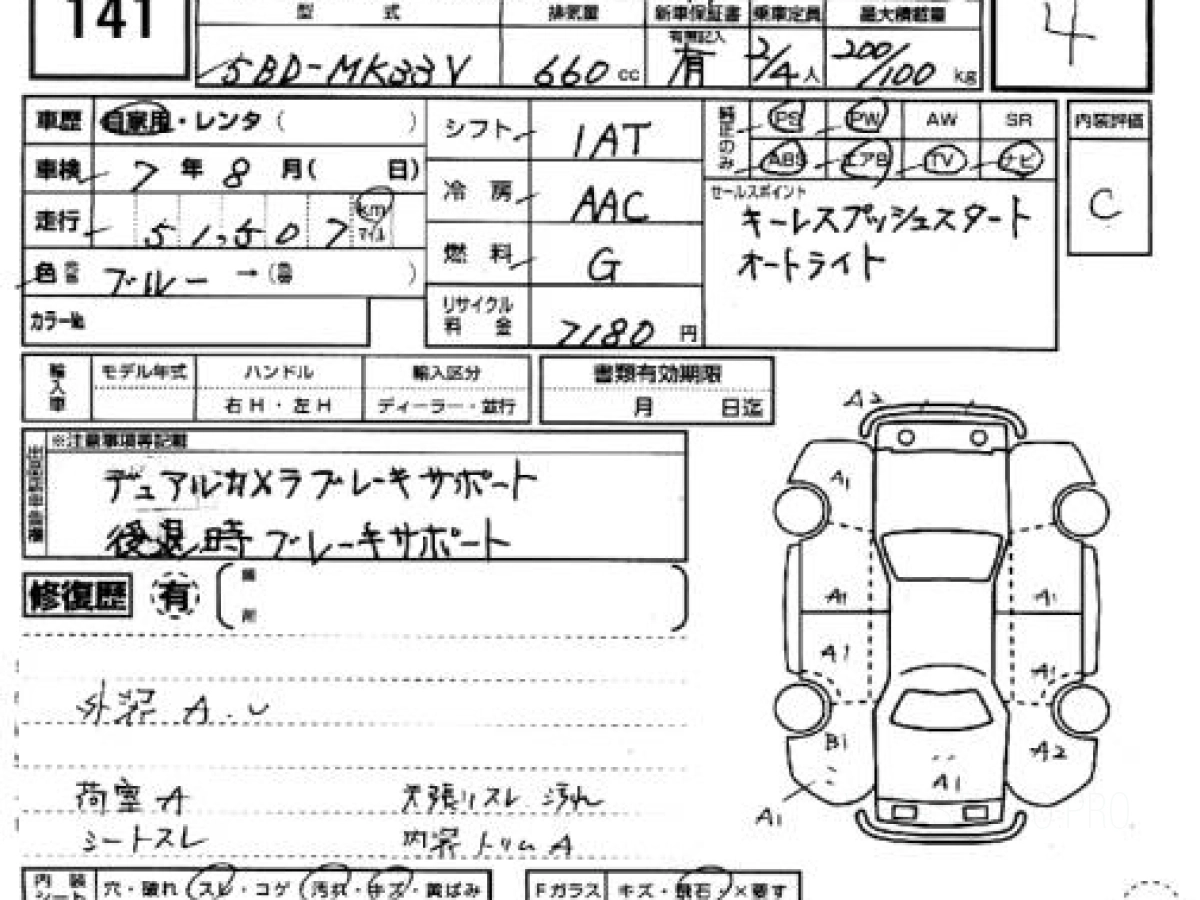 141
型 式 排気量 新車保証書 乗車定員 最大積載量
有無記入
5BD-MK33V 660 cc 有 2/4 人 200/100 kg
4
車歴 自家用・レンタ ( )
シフト 1AT
純正のみ PS PW AW SR
ABS エアB TV ナビ
内装評価
C
車検 7 年 8 月 ( 日)
冷房 AAC
セールスポイント
キーレスプッシュスタート
オートライト
走行 51,507 km マイル
燃料 G
色 ブルー → ( )
カラー№
リサイクル料金 7180 円
輸入車 モデル年式 ハンドル 輸入区分
右H・左H ディーラー・並行
書類有効期限
月 日迄
※注意事項等記載
デュアルカメラブレーキサポート
後退時ブレーキサポート
修復歴 有
外装 A.U
荷室 A 天張リスレ 汚れ
シートスレ 内装トリム A
A2
A1
A1 A1
A1 A1
B1 A2
A1
A1
内装シート 穴・破れ スレ・コゲ 汚れ・キズ・黄ばみ
Fガラス キズ・飛石・×要す